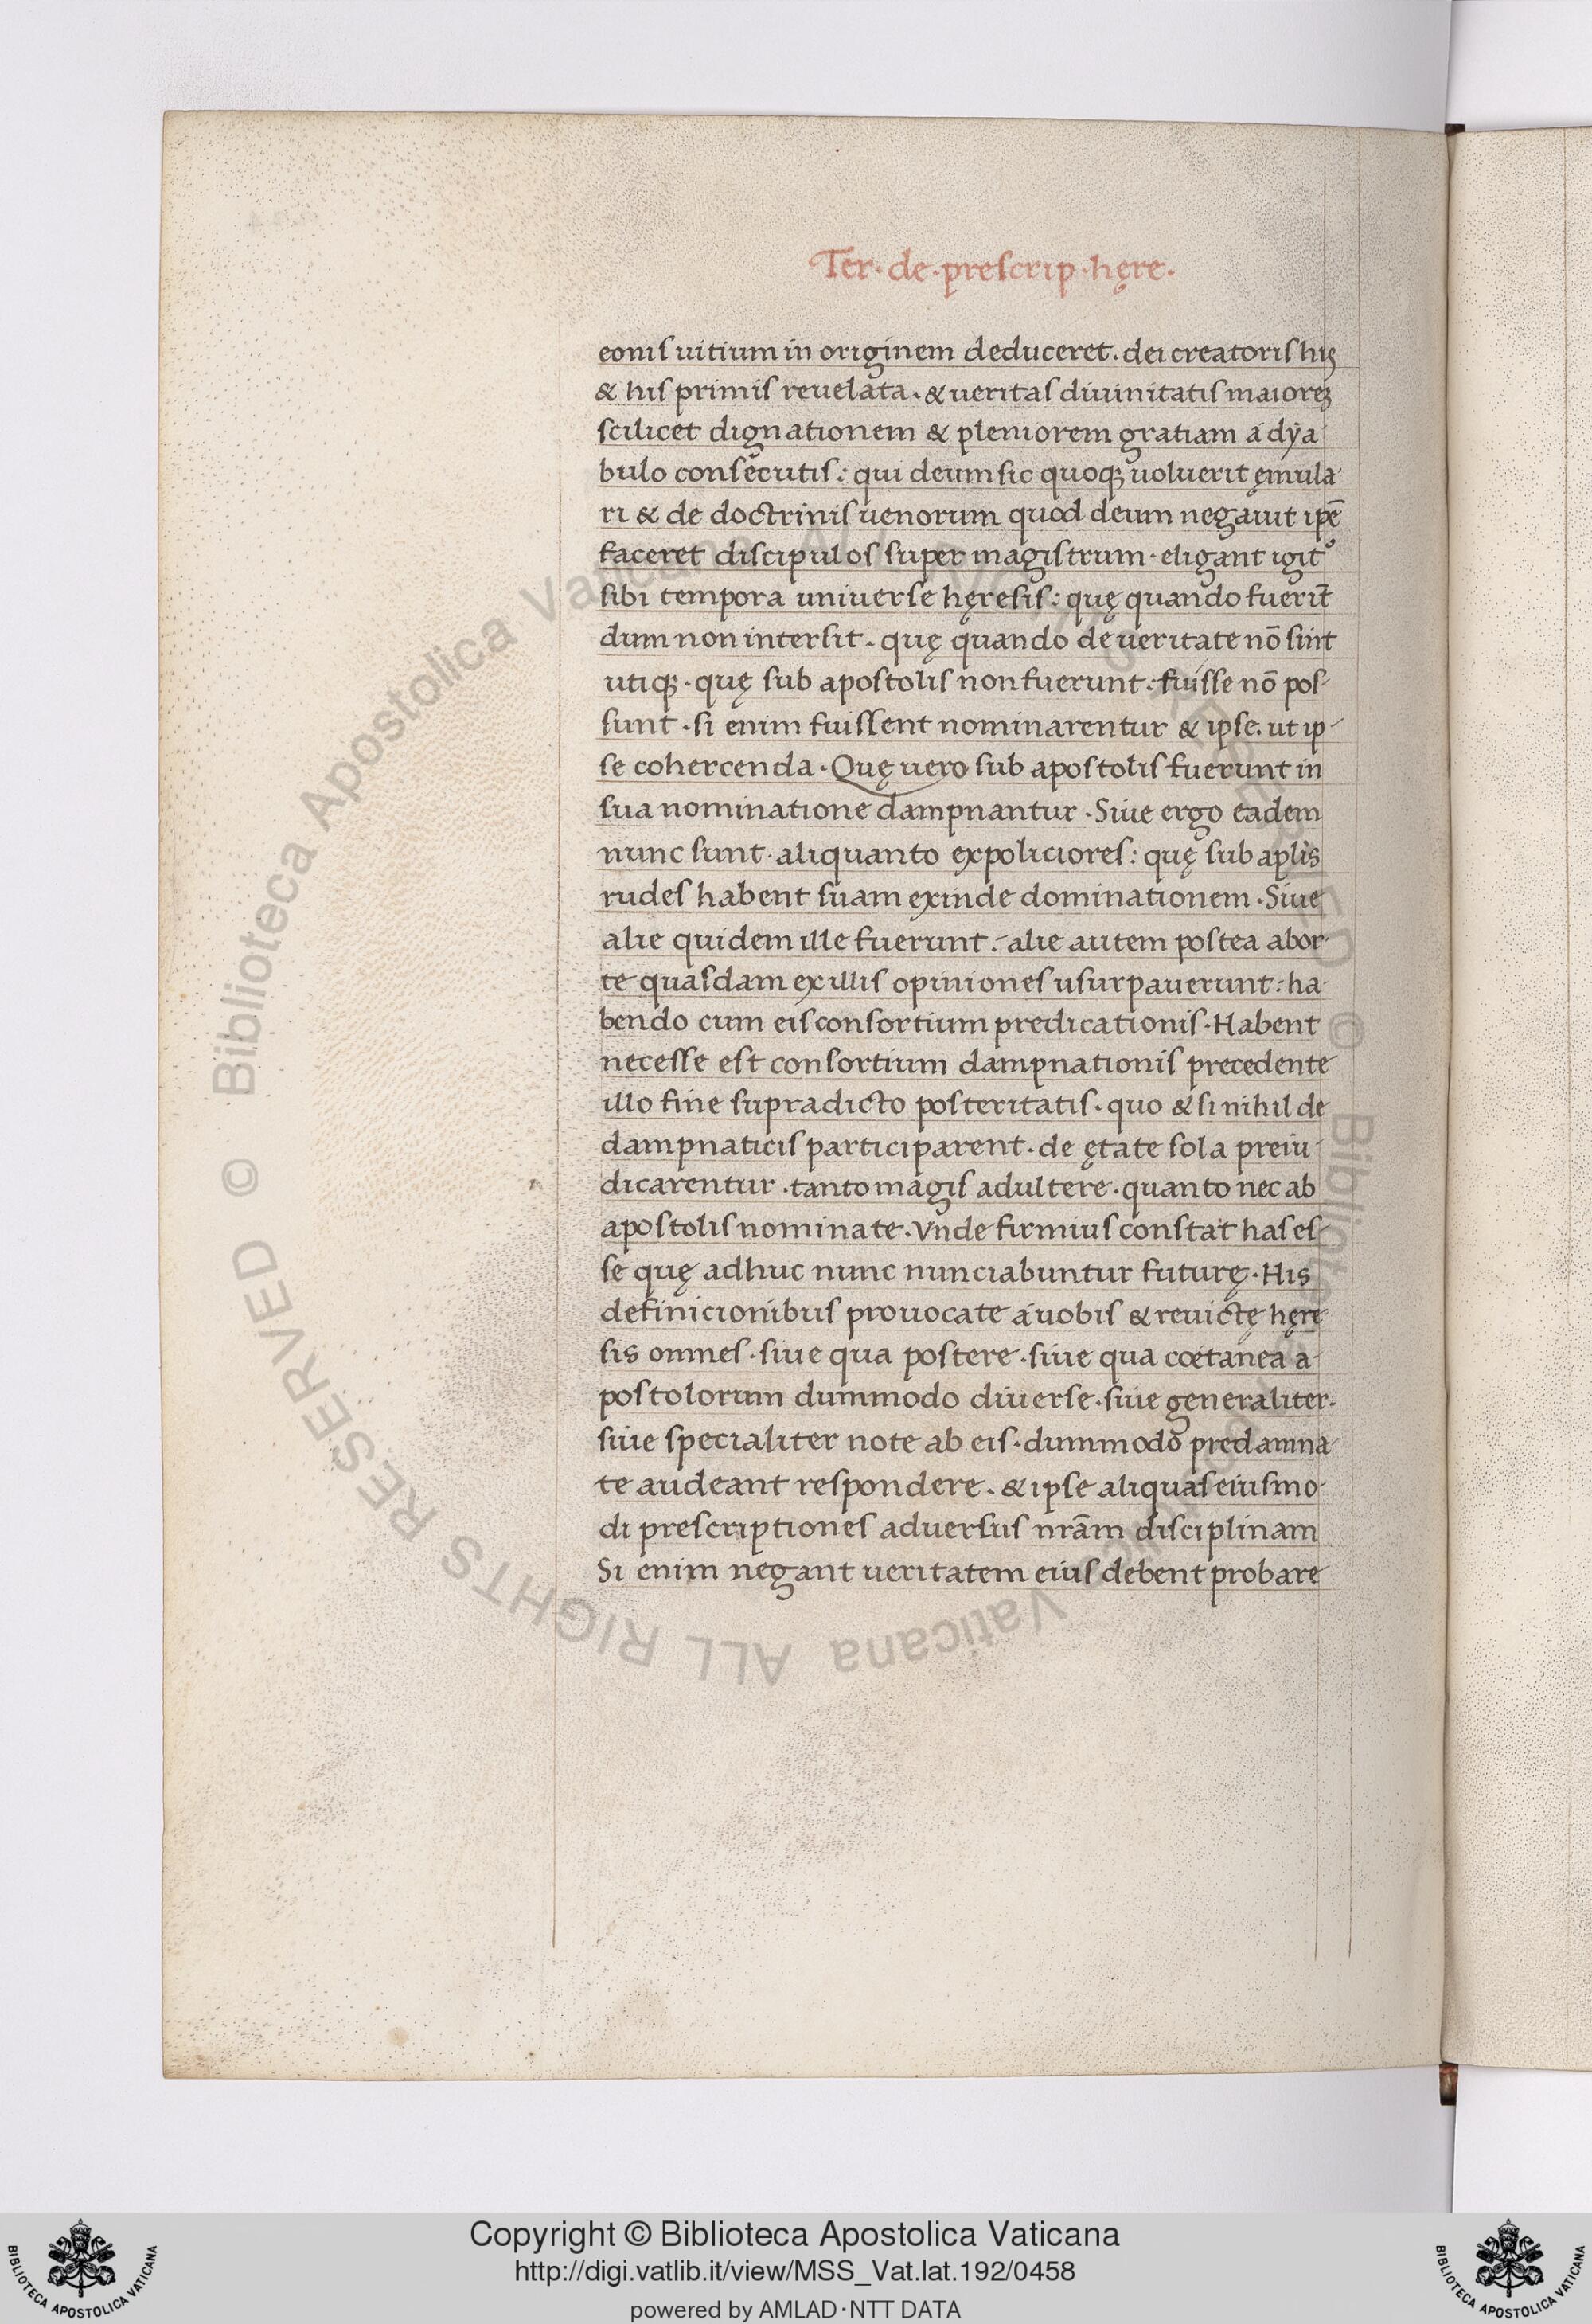 Ter· de· prescrip· hęre·
eonis uitium in originem deduceret. dei creatoris hiis
& his primis reuelata. & ueritas diuinitatis maiorēȝ
scilicet dignationem & pleniorem gratiam a dya
bulo consecutis: qui deum sic quoqȝ uoluerit ęmula
ri & de doctrinis uenorum quod deum negauit ip̄e
faceret discipulos super magistrum· eligant igit᷒
sibi tempora uniuerse hęresis: quę quando fuerit̄
dum non intersit. quę quando de ueritate nō sint
utiqȝ· quę sub apostolis non fuerunt: fuisse nō pos-
sunt· si enim fuissent nominarentur & ipse. ut ip-
se cohercenda· Quę uero sub apostolis fuerunt in
sua nominatione dampnantur· Siue ergo eadem
nunc sunt· aliquanto expoliciores: quę sub aplis
rudes habent suam exinde dominationem· Siue
alie quidem ille fuerunt: alie autem postea abor-
te quasdam ex illis opiniones usurpauerunt: ha
bendo cum eis consortium predicationis· Habent
necesse est consortium dampnationis precedente
illo fine supradicto posteritatis. quo & si nihil de
dampnaticis participarent· de ętate sola preiu-
dicarentur· tanto magis adultere· quanto nec ab
apostolis nominate· Vnde firmius constat has es-
se quę adhuc nunc nunciabuntur futurę· His
definicionibus prouocate a uobis & reuictę hęre-
sis omnes· siue qua postere· siue qua coetanea a-
postolorum dummodo diuerse· siue generaliter.
siue specialiter note ab eis· dummodo predamna-
te audeant respondere. & ipse aliquas eiusmo-
di prescriptiones aduersus nr̄am disciplinam
Si enim negant ueritatem eius debent probare
© Biblioteca Apostolica Vaticana ALL RIGHTS RESERVED © Biblioteca Apostolica Vaticana ALL RIGHTS RESERVED
Copyright © Biblioteca Apostolica Vaticana
http://digi.vatlib.it/view/MSS_Vat.lat.192/0458
powered by AMLAD·NTT DATA
BIBLIOTECA APOSTOLICA VATICANA
BIBLIOTECA APOSTOLICA VATICANA